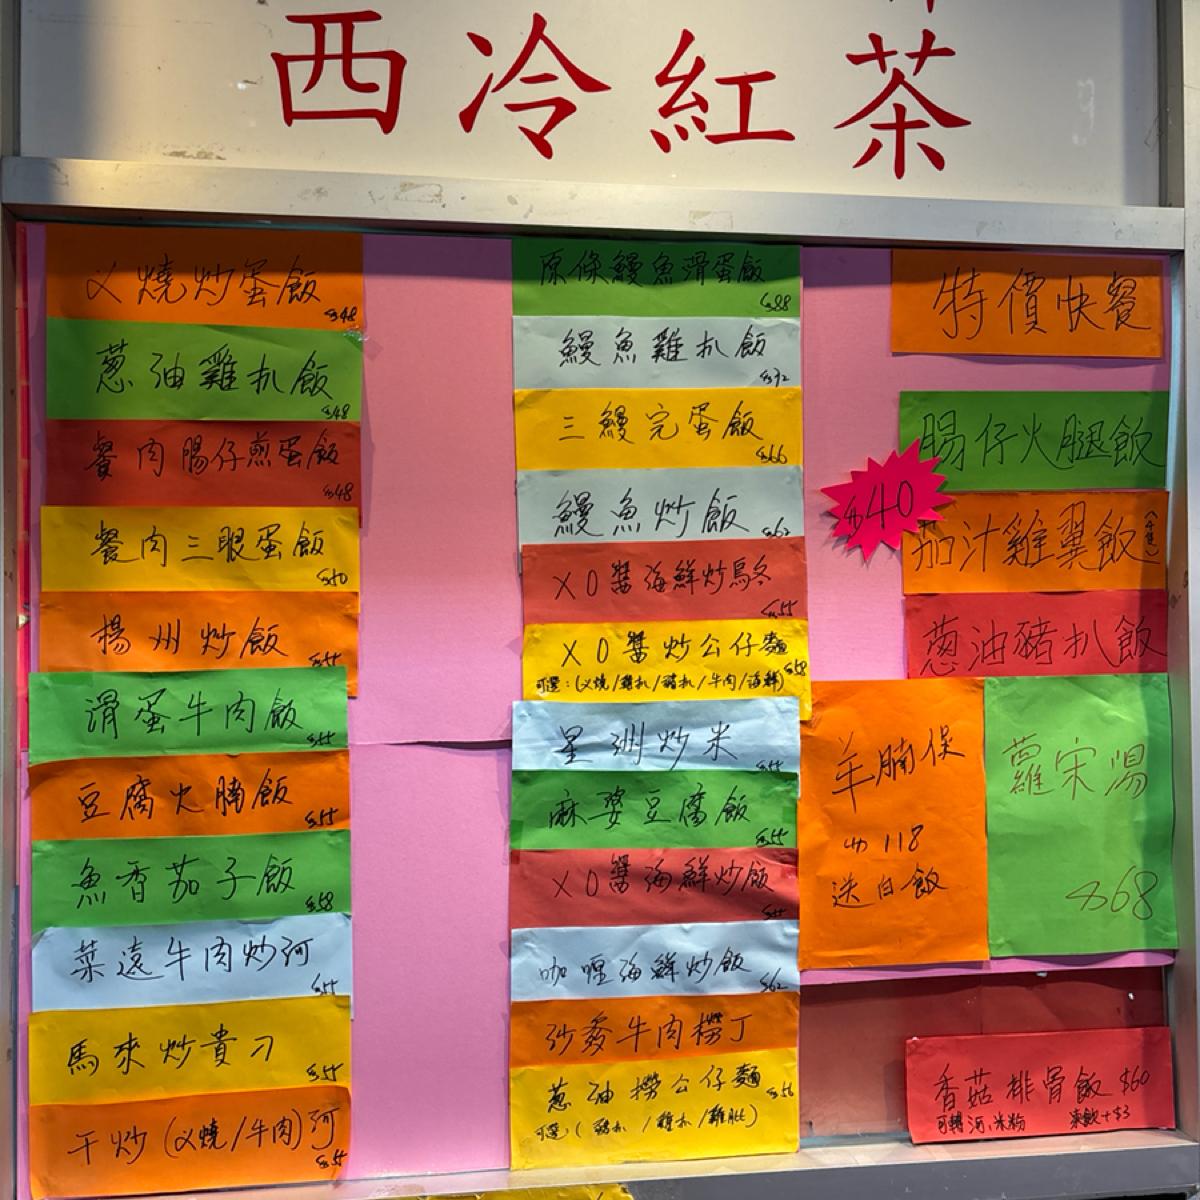 西冷紅茶
乂燒炒蛋飯 $48
葱油雞扒飯 $48
餐肉腸仔煎蛋飯 $48
餐肉三眼蛋飯 $50
楊州炒飯 $55
滑蛋牛肉飯 $55
豆腐火腩飯 $55
魚香茄子飯 $58
菜遠牛肉炒河 $55
馬來炒貴刁 $55
干炒(乂燒/牛肉)河 $55
原條鰻魚滑蛋飯 $88
鰻魚雞扒飯 $72
三鰻完蛋飯 $66
鰻魚炒飯 $62
XO醬海鮮炒烏冬 $55
XO醬炒公仔麵 $58
可選:(乂燒/雞扒/豬扒/牛肉/海鮮)
星洲炒米 $55
麻婆豆腐飯 $55
XO醬海鮮炒飯 $55
咖喱海鮮炒飯 $62
沙爹牛肉撈丁
葱油撈公仔麵 $56
可選:(豬扒/雞扒/雞肶)
特價快餐
$40
腸仔火腿飯
茄汁雞翼飯
葱油豬扒飯
羊腩保
$118
送白飯
蘿宋湯
$68
香菇排骨飯 $60
可轉河,米粉 凍飲+$3